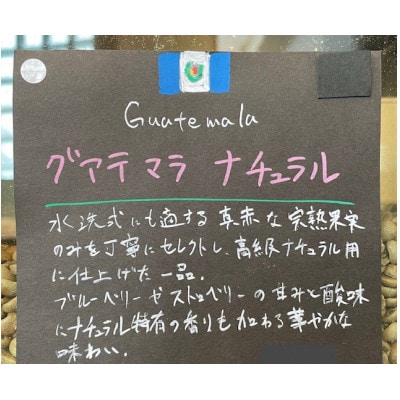 Guatemala
グアテマラ ナチュラル
水洗式にも適する真赤な完熟果実
のみを丁寧にセレクトし、高級ナチュラル用
に仕上げた一品.
ブルーベリーやストロベリーの甘みと酸味
にナチュラル特有の香りも加わる華やかな
味わい.